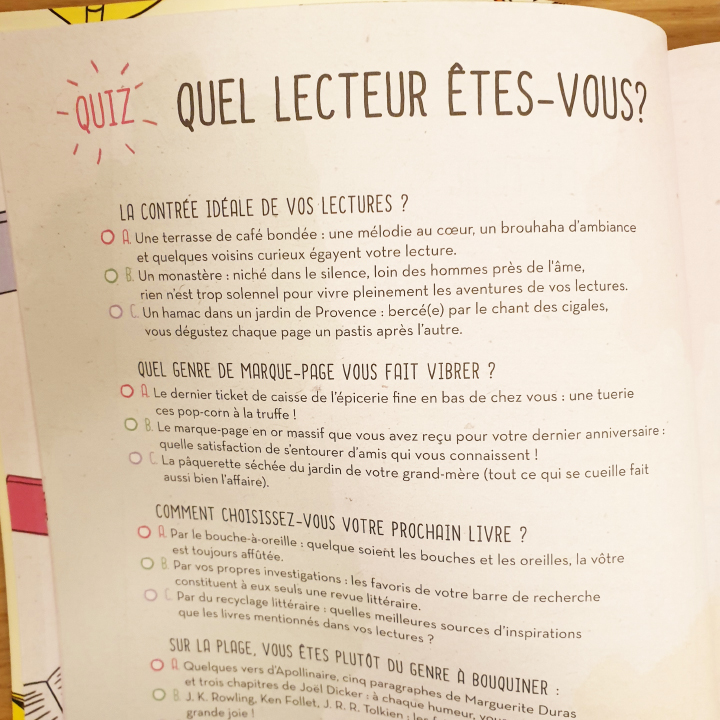 QUIZ
QUEL LECTEUR ÊTES-VOUS?
LA CONTRÉE IDÉALE DE VOS LECTURES ?
A. Une terrasse de café bondée : une mélodie au cœur, un brouhaha d'ambiance
et quelques voisins curieux égayent votre lecture.
B. Un monastère : niché dans le silence, loin des hommes près de l'âme,
rien n'est trop solennel pour vivre pleinement les aventures de vos lectures.
C. Un hamac dans un jardin de Provence : bercé(e) par le chant des cigales,
vous dégustez chaque page un pastis après l'autre.
QUEL GENRE DE MARQUE-PAGE VOUS FAIT VIBRER ?
A. Le dernier ticket de caisse de l'épicerie fine en bas de chez vous : une tuerie
ces pop-corn à la truffe !
B. Le marque-page en or massif que vous avez reçu pour votre dernier anniversaire :
quelle satisfaction de s'entourer d'amis qui vous connaissent !
C. La pâquerette séchée du jardin de votre grand-mère (tout ce qui se cueille fait
aussi bien l'affaire).
COMMENT CHOISISSEZ-VOUS VOTRE PROCHAIN LIVRE ?
A. Par le bouche-à-oreille : quelque soient les bouches et les oreilles, la vôtre
est toujours affûtée.
B. Par vos propres investigations : les favoris de votre barre de recherche
constituent à eux seuls une revue littéraire.
C. Par du recyclage littéraire : quelles meilleures sources d'inspirations
que les livres mentionnés dans vos lectures ?
SUR LA PLAGE, VOUS ÊTES PLUTÔT DU GENRE À BOUQUINER :
A. Quelques vers d'Apollinaire, cinq paragraphes de Marguerite Duras
et trois chapitres de Joël Dicker : à chaque humeur,
B. J. K. Rowling, Ken Follet, J. R. R. Tolkien :
grande joie !